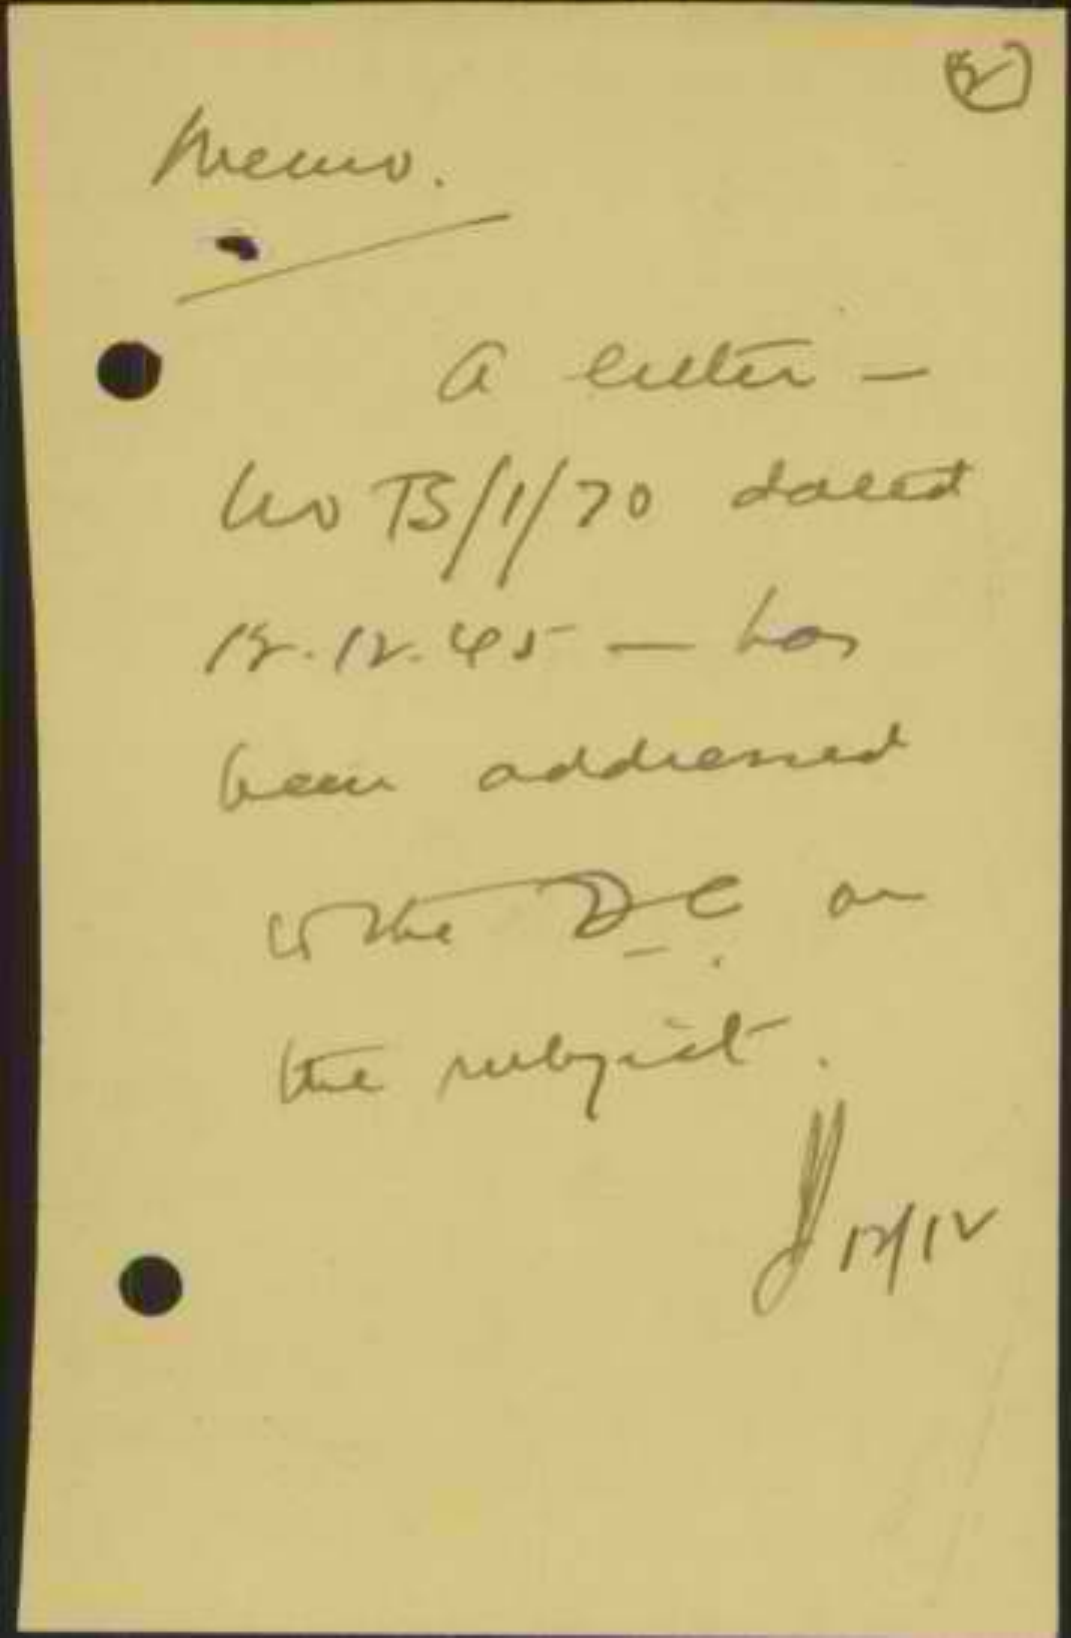 Memo.
A letter –
No TB/1/70 dated
12.12.45 – has
been addressed
to the D.C. on
the subject.
12/12